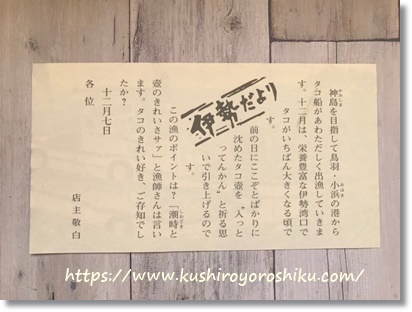 伊勢だより
神島を目指して鳥羽・小浜の港から
タコ船があわただしく出漁していきま
す。十二月は、栄養豊富な伊勢湾口で
タコがいちばん大きくなる頃で
す。
前の日にここぞとばかりに
沈めたタコ壺を“入っと
ってんかん”と祈る思
いで引き上げるので
す。
この漁のポイントは?「潮時と
壺のきれいさサァ」と漁師さんは言い
ます。タコのきれい好き、ご存知でし
たか?
十二月七日
各位
店主敬白
https://www.kushiroyoroshiku.com/